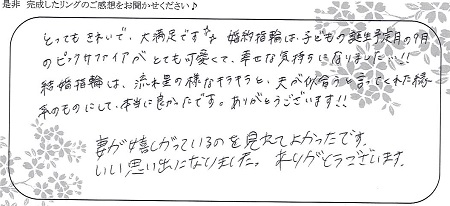 是非 完成したリングのご感想をお聞かせください♪
とってもきれいで、大満足です 婚約指輪は、子どもの誕生予定月の9月
のピンクサファイアがとても可愛くて、幸せな気持ちになりました…!!
結婚指輪は、流れ星の様なキラキラと、夫が似合うと言ってくれた縁
ありのものにして、本当に良かったです。ありがとうございます!!
妻が嬉しがっているのを見れてよかったです。
いい思い出になりました。ありがとうございます。